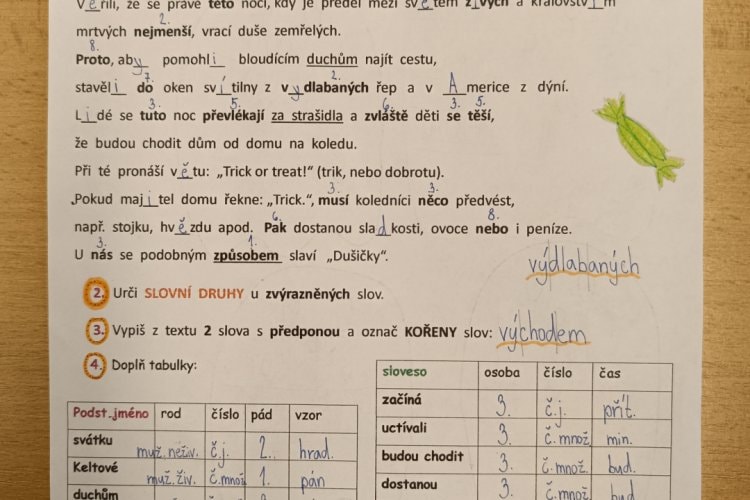 Věřili, že se právě této noci, kdy je předěl mezi světem živých a královstvím
2.
mrtvých nejmenší, vrací duše zemřelých.
8.
Proto, aby pomohli bloudícím duchům najít cestu,
7. 2.
stavěli do oken svítilny z vydlabaných řep a v Americe z dýní.
3. 5. 6. 3. 5.
Lidé se tuto noc převlékají za strašidla a zvláště děti se těší,
že budou chodit dům od domu na koledu.
Při té pronáší větu: „Trick or treat!“ (trik, nebo dobrotu).
3. 3.
Pokud majitel domu řekne: „Trick.“, musí koledníci něco předvést,
6. 8.
např. stojku, hvězdu apod. Pak dostanou sladkosti, ovoce nebo i peníze.
3. 1.
U nás se podobným způsobem slaví „Dušičky“.
výdlabaných
2. Urči SLOVNÍ DRUHY u zvýrazněných slov.
3. Vypiš z textu 2 slova s předponou a označ KOŘENY slov: východem
4. Doplň tabulky:
Podst.jméno rod číslo pád vzor
svátku muž. neživ. č.j. 2. hrad.
Keltové muž. živ. č.množ 1. pán
duchům
sloveso osoba číslo čas
začíná 3. č.j. přít.
uctívali 3. č.množ. min.
budou chodit 3. č.množ. bud.
dostanou 3. č.množ. bud